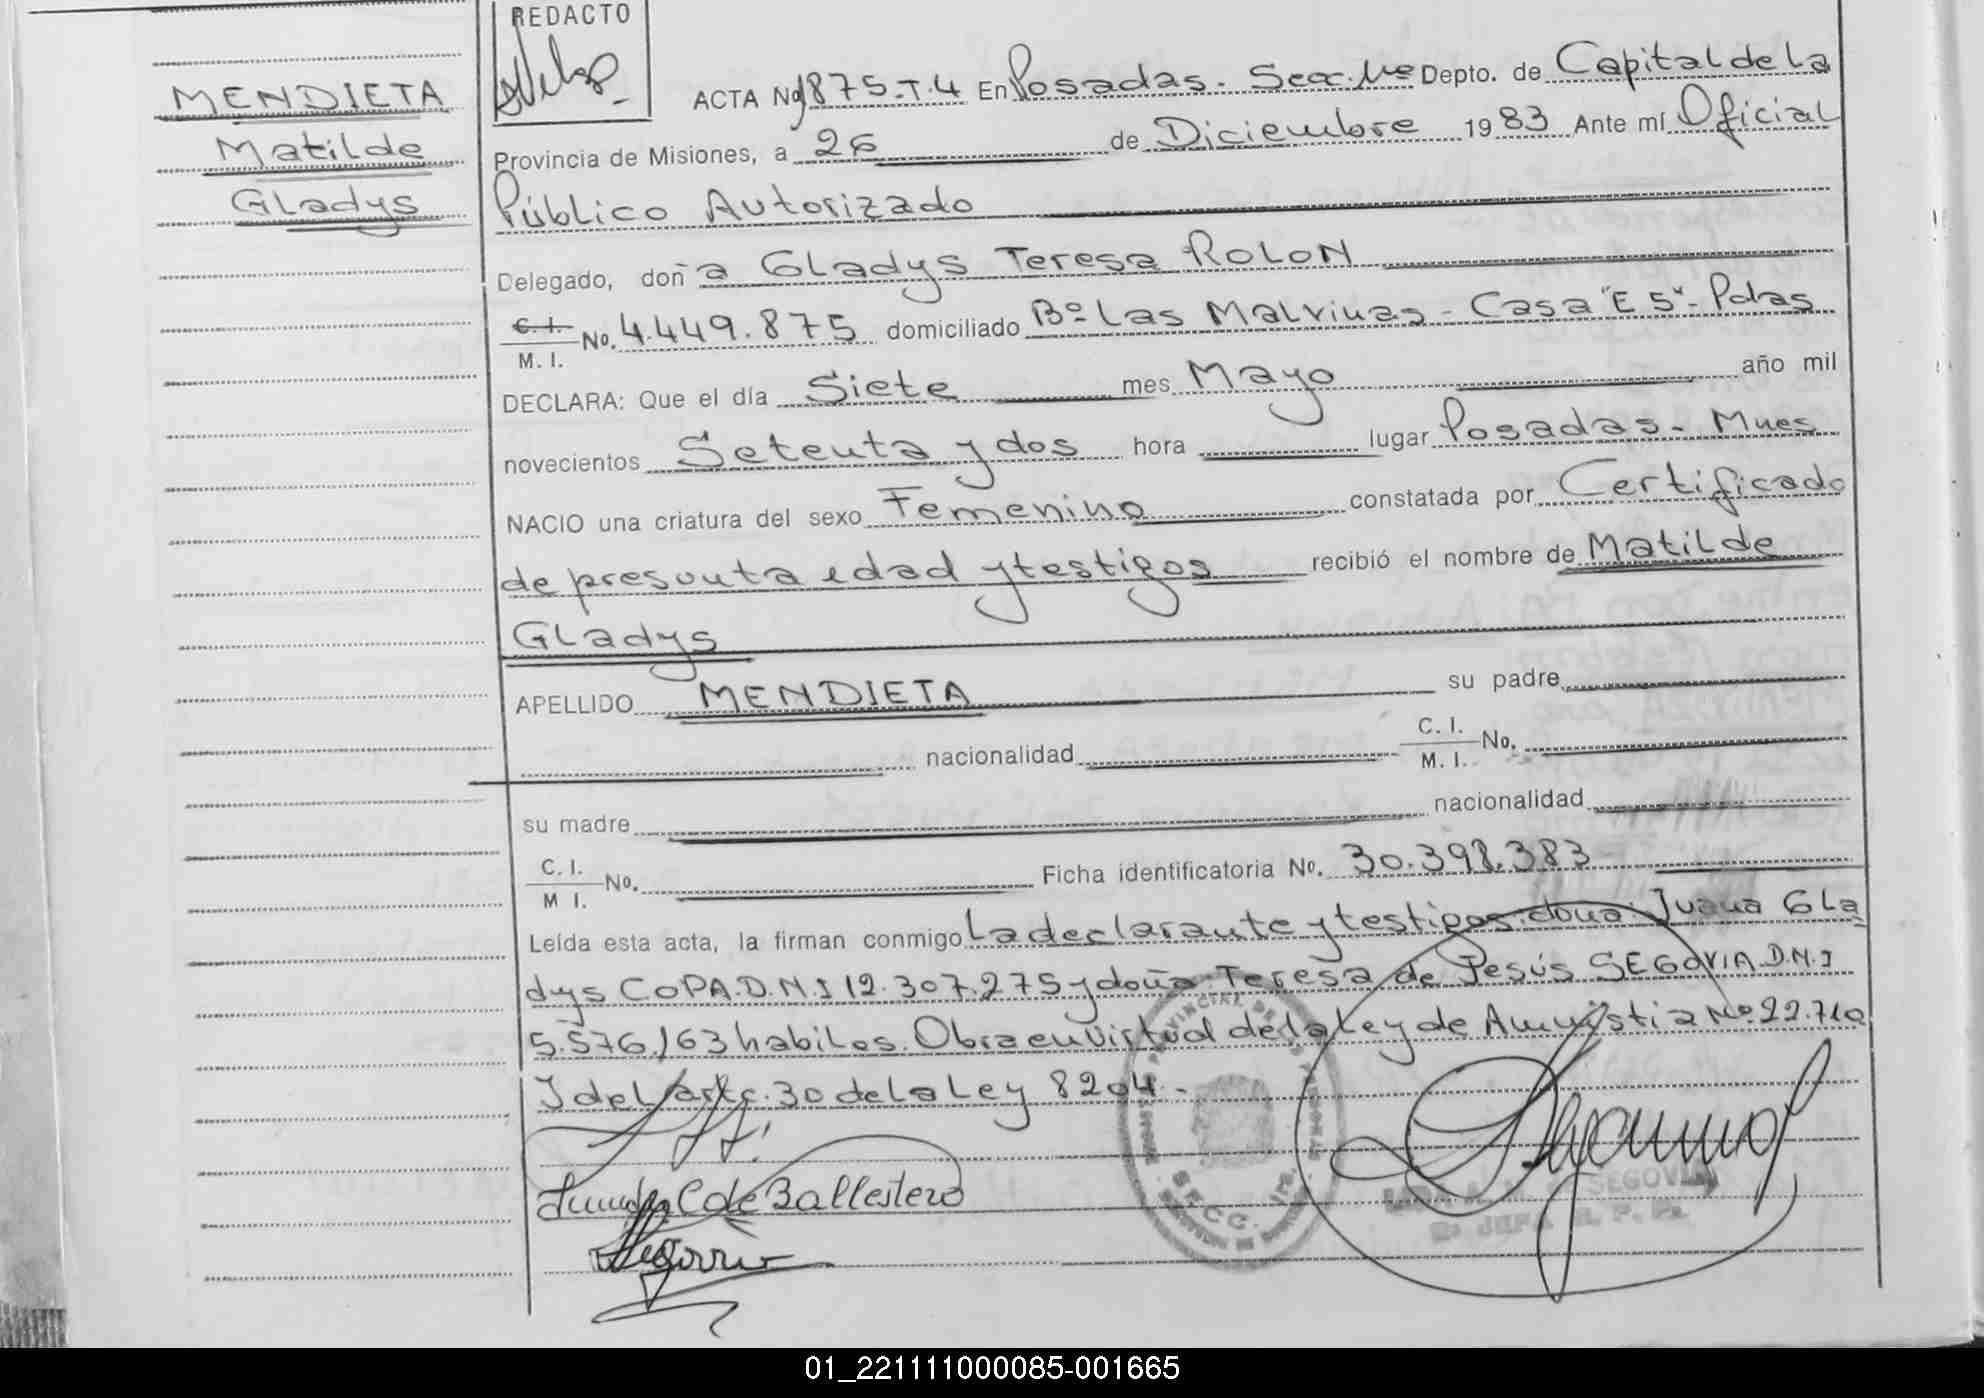 MENDIETA
Matilde
Gladys
REDACTO
ACTA No 1875-T.4 En Posadas. Secc. 1ra Depto. de Capital de La
Provincia de Misiones, a 26 de Diciembre 1983 Ante mí Oficial
Público Autorizado
Delegado, doña Gladys Teresa ROLON
C. I.
M. I. No. 4.449.875 domiciliado Bº Las Malvinas - Casa "E 5" - Pdas
DECLARA: Que el día Siete mes Mayo año mil
novecientos Setenta y dos hora lugar Posadas - Mnes
NACIO una criatura del sexo Femenino constatada por Certificado
de presunta edad y testigos recibió el nombre de Matilde
Gladys
APELLIDO MENDIETA su padre
nacionalidad C. I.
M. I. No.
su madre nacionalidad
C. I.
M I. No. Ficha identificatoria No. 30.398.383
Leída esta acta, la firman conmigo La declarante y testigos: doña: Juana Gla
dys COPA. D.N.I 12.307.275 y doña Teresa de Jesús SEGOVIA D.N.I
5.576.163 habiles. Obra en virtud de la Ley de Amnistia Nº 22.710
Y del art. 30 de la Ley 8204.-
C de Ballestero
SEGOVIA
2º JEFA
01_221111000085-001665